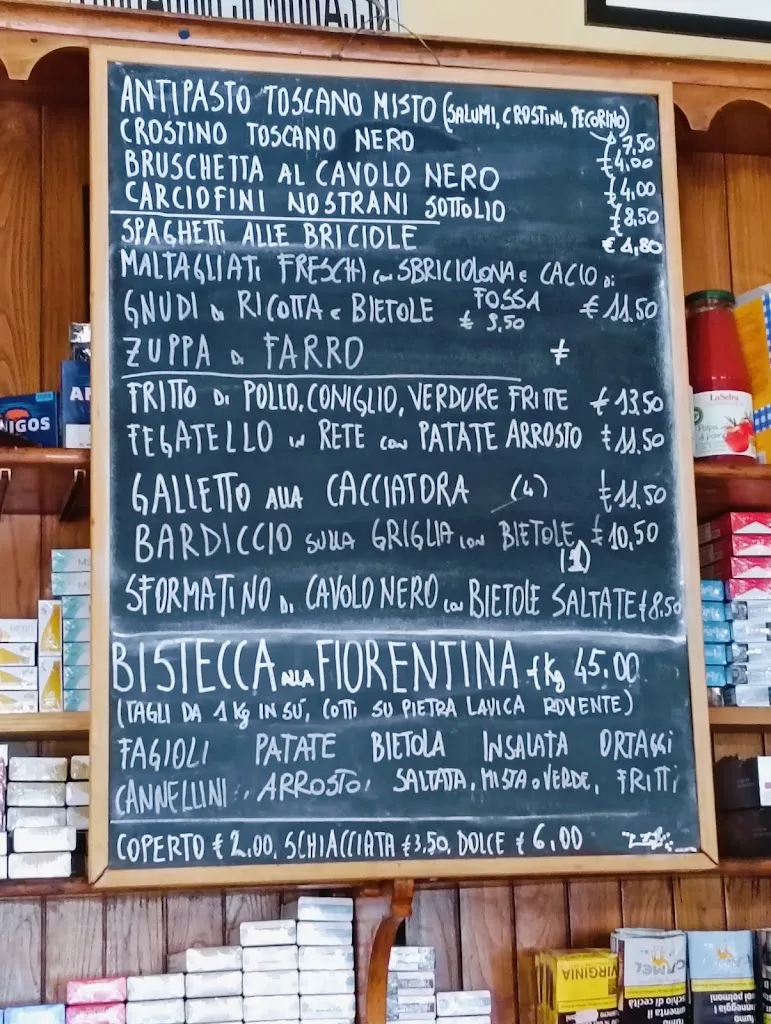 ANTIPASTO TOSCANO MISTO (SALUMI, CROSTINI, PECORINO) €7,50
CROSTINO TOSCANO NERO €4,00
BRUSCHETTA AL CAVOLO NERO €4,00
CARCIOFINI NOSTRANI SOTTOLIO €8,50
SPAGHETTI ALLE BRICIOLE
MALTAGLIATI FRESCHI con SBRICIOLONA e CACIO di
FOSSA € 11.50
GNUDI di RICOTTA e BIETOLE € 9,50
ZUPPA di FARRO €
FRITTO DI POLLO, CONIGLIO, VERDURE FRITTE € 13,50
FEGATELLO in RETE con PATATE ARROSTO €11.50
GALLETTO ALLA CACCIATORA (4) €11.50
BARDICCIO SULLA GRIGLIA con BIETOLE €10,50
(1)
SFORMATINO di CAVOLO NERO con BIETOLE SALTATE €8.50
BISTECCA ALLA FIORENTINA €Kg 45.00
(TAGLI DA 1 Kg IN SU', COTTI SU PIETRA LAVICA ROVENTE)
FAGIOLI PATATE BIETOLA INSALATA ORTAGGI
CANNELLINI, ARROSTO, SALTATA, MISTA o VERDE, FRITTI
COPERTO € 2,00, SCHIACCIATA €3,50, DOLCE € 6,00
LaSelva
VIRGINIA